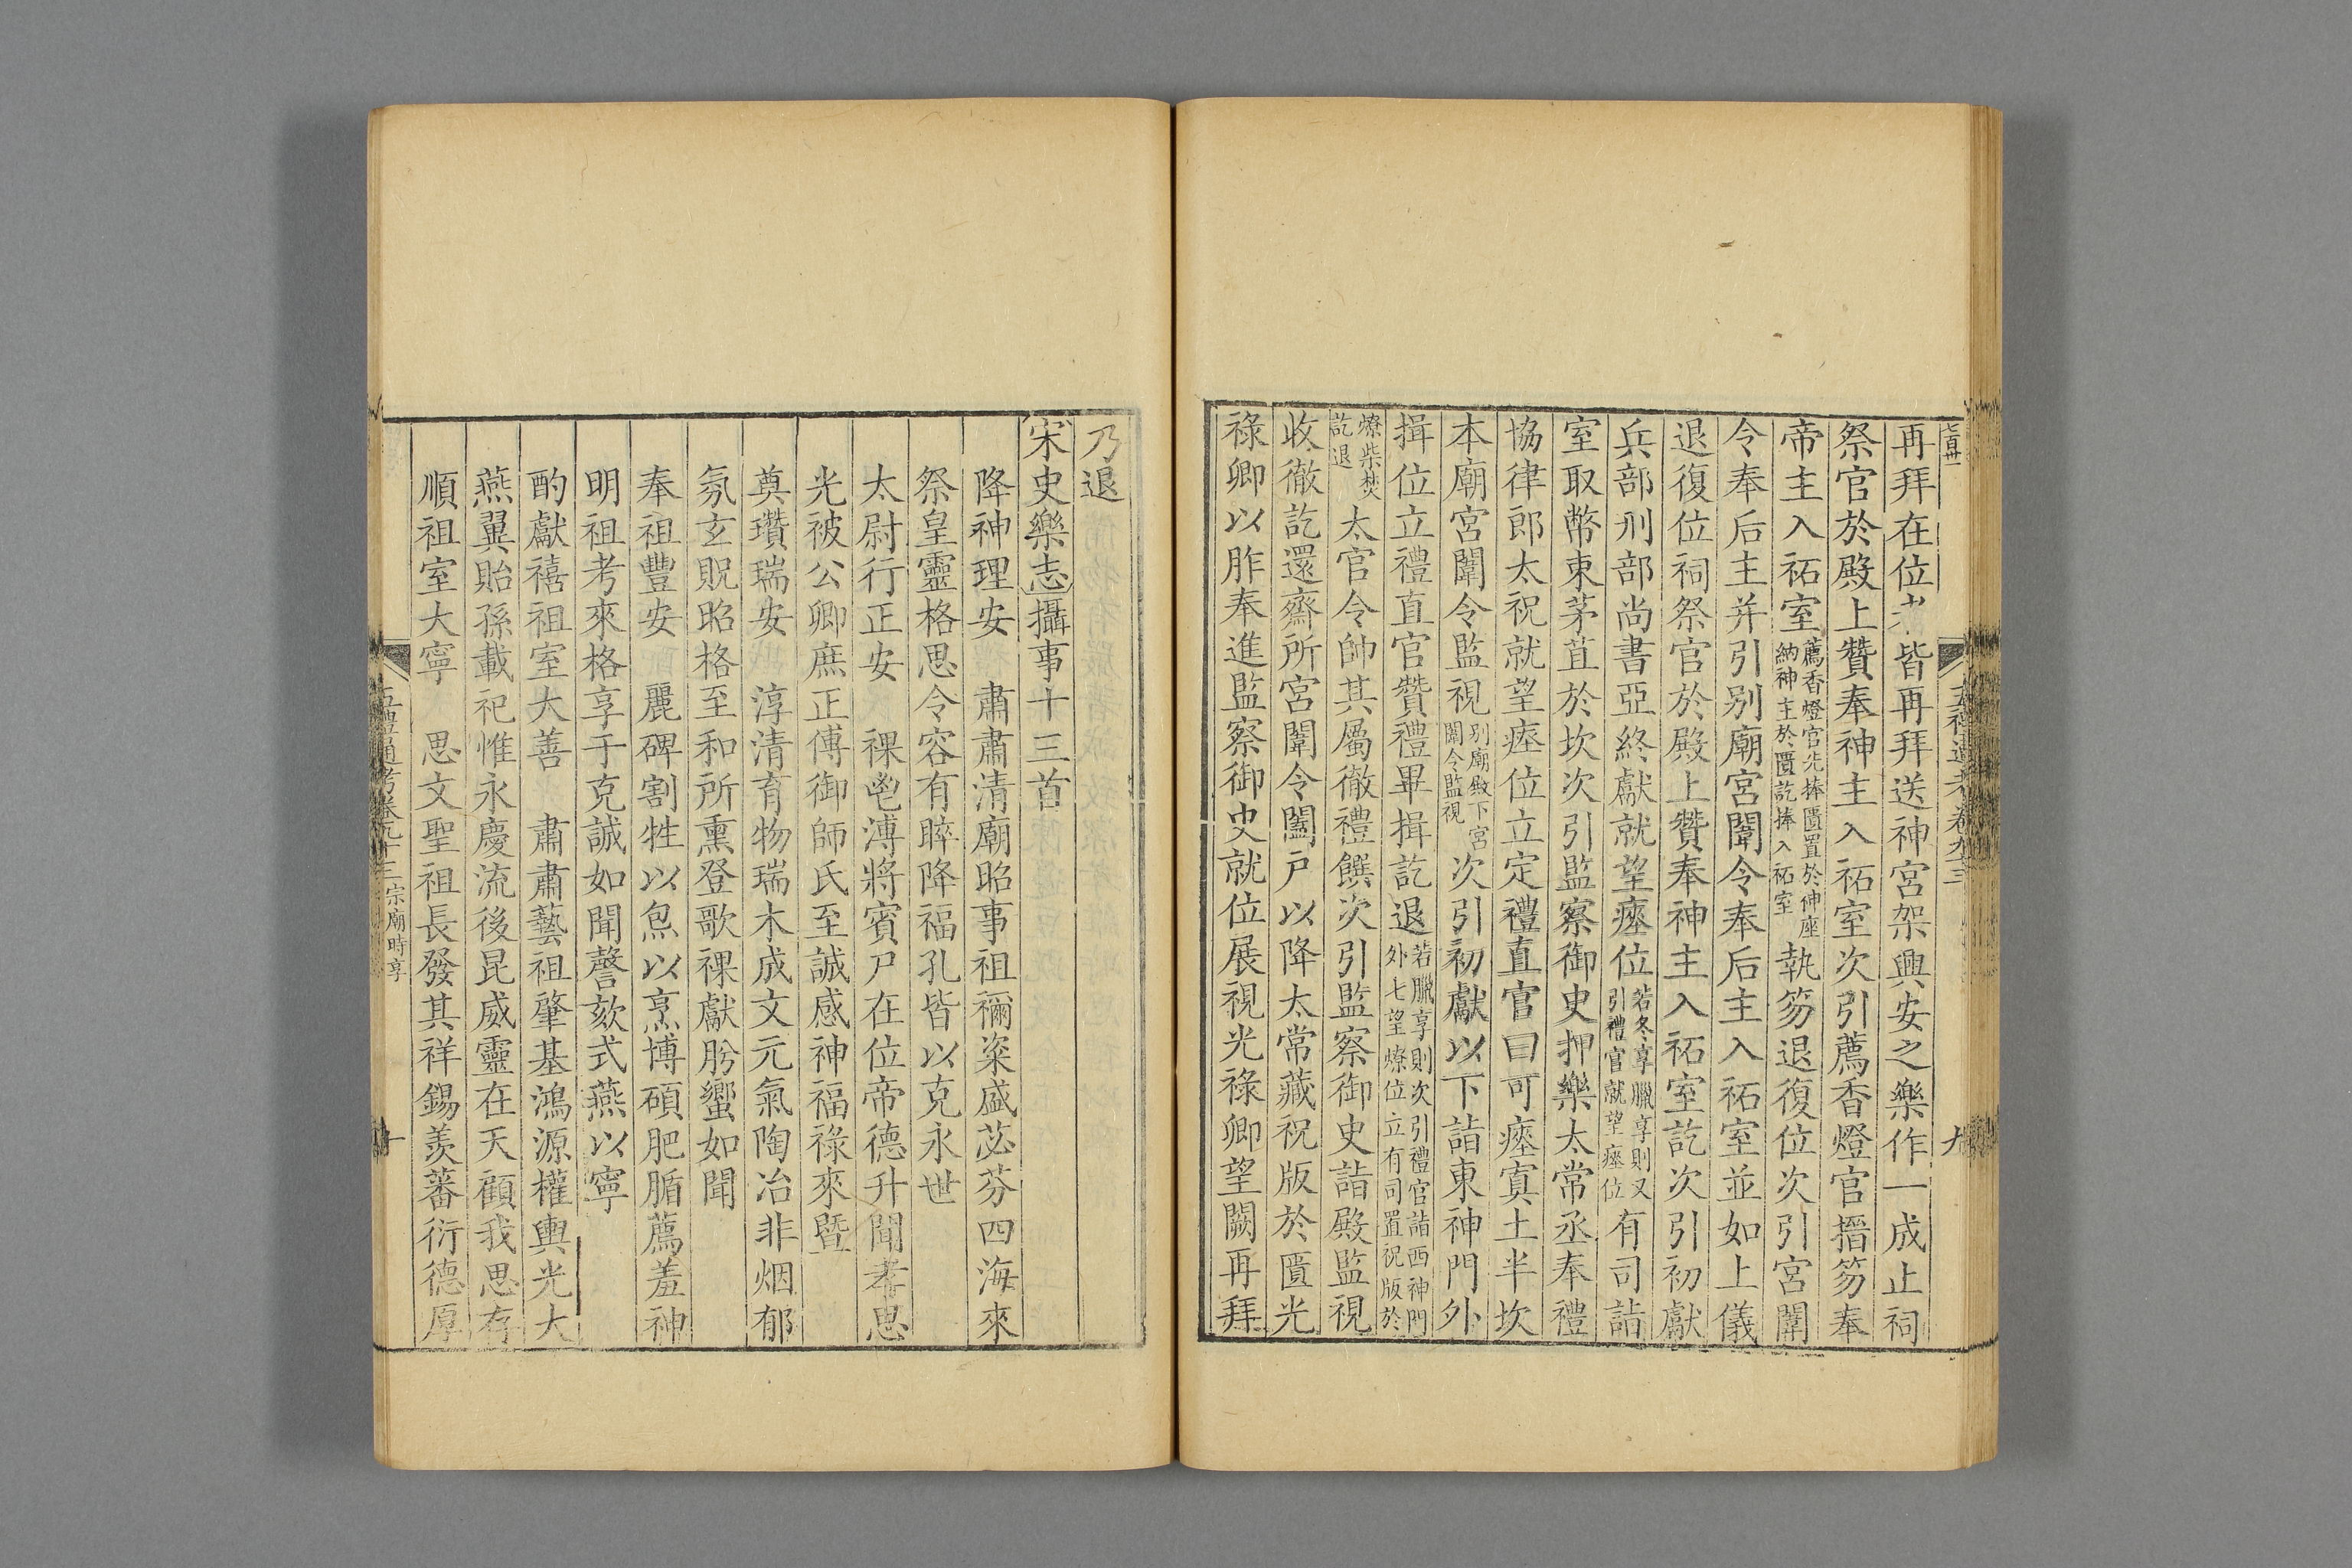 再拜在位者皆再拜送神宮架興安之樂作一成止祠
祭官於殿上贊奉神主入祏室次引薦香燈官搢笏奉
帝主入祏室薦香燈官先捧匱置於神座納神主於匱訖捧入祏室執笏退復位次引宮闈
令奉后主并引别廟宮闈令奉后主入祏室並如上儀
退復位祠祭官於殿上贊奉神主入祏室訖次引初獻
兵部刑部尚書亞終獻就望瘞位若冬享臘享則又引禮官就望瘞位有司詣
室取幣束茅苴於坎次引監察御史押樂太常丞奉禮
協律郎太祝就望瘞位立定禮直官曰可瘞寘土半坎
本廟宮闈令監視别廟殿下宮闈令監視次引初獻以下詣東神門外
揖位立禮直官贊禮畢揖訖退若臘享則次引禮官詣西神門外七望燎位立有司置祝版於
燎柴焚訖退太官令帥其屬徹禮饌次引監察御史詣殿監視
收徹訖還齋所宮闈令闔戶以降太常藏祝版於匱光
祿卿以胙奉進監察御史就位展視光祿卿望闕再拜
乃退
宋史樂志攝事十三首
降神理安　肅肅清廟昭事祖禰粢盛苾芬四海來
祭皇靈格思令容有睟降福孔皆以克永世
太尉行正安　祼鬯溥將賓尸在位帝德升聞孝思
光被公卿庶正傅御師氏至誠感神福祿來暨
奠瓚瑞安　淳清育物瑞木成文元氣陶冶非烟郁
氛玄貺昭格至和所熏登歌祼獻肹蠁如聞
奉祖豐安　麗碑割牲以炰以烹博碩肥腯薦羞神
明祖考來格享于克誠如聞謦欬式燕以寧
酌獻禧祖室大善　肅肅藝祖肇基鴻源權輿光大
燕翼貽孫載祀惟永慶流後昆威靈在天顧我思存
順祖室大寧　思文聖祖長發其祥錫羨蕃衍德厚
五禮通考卷九十三　宗廟時享